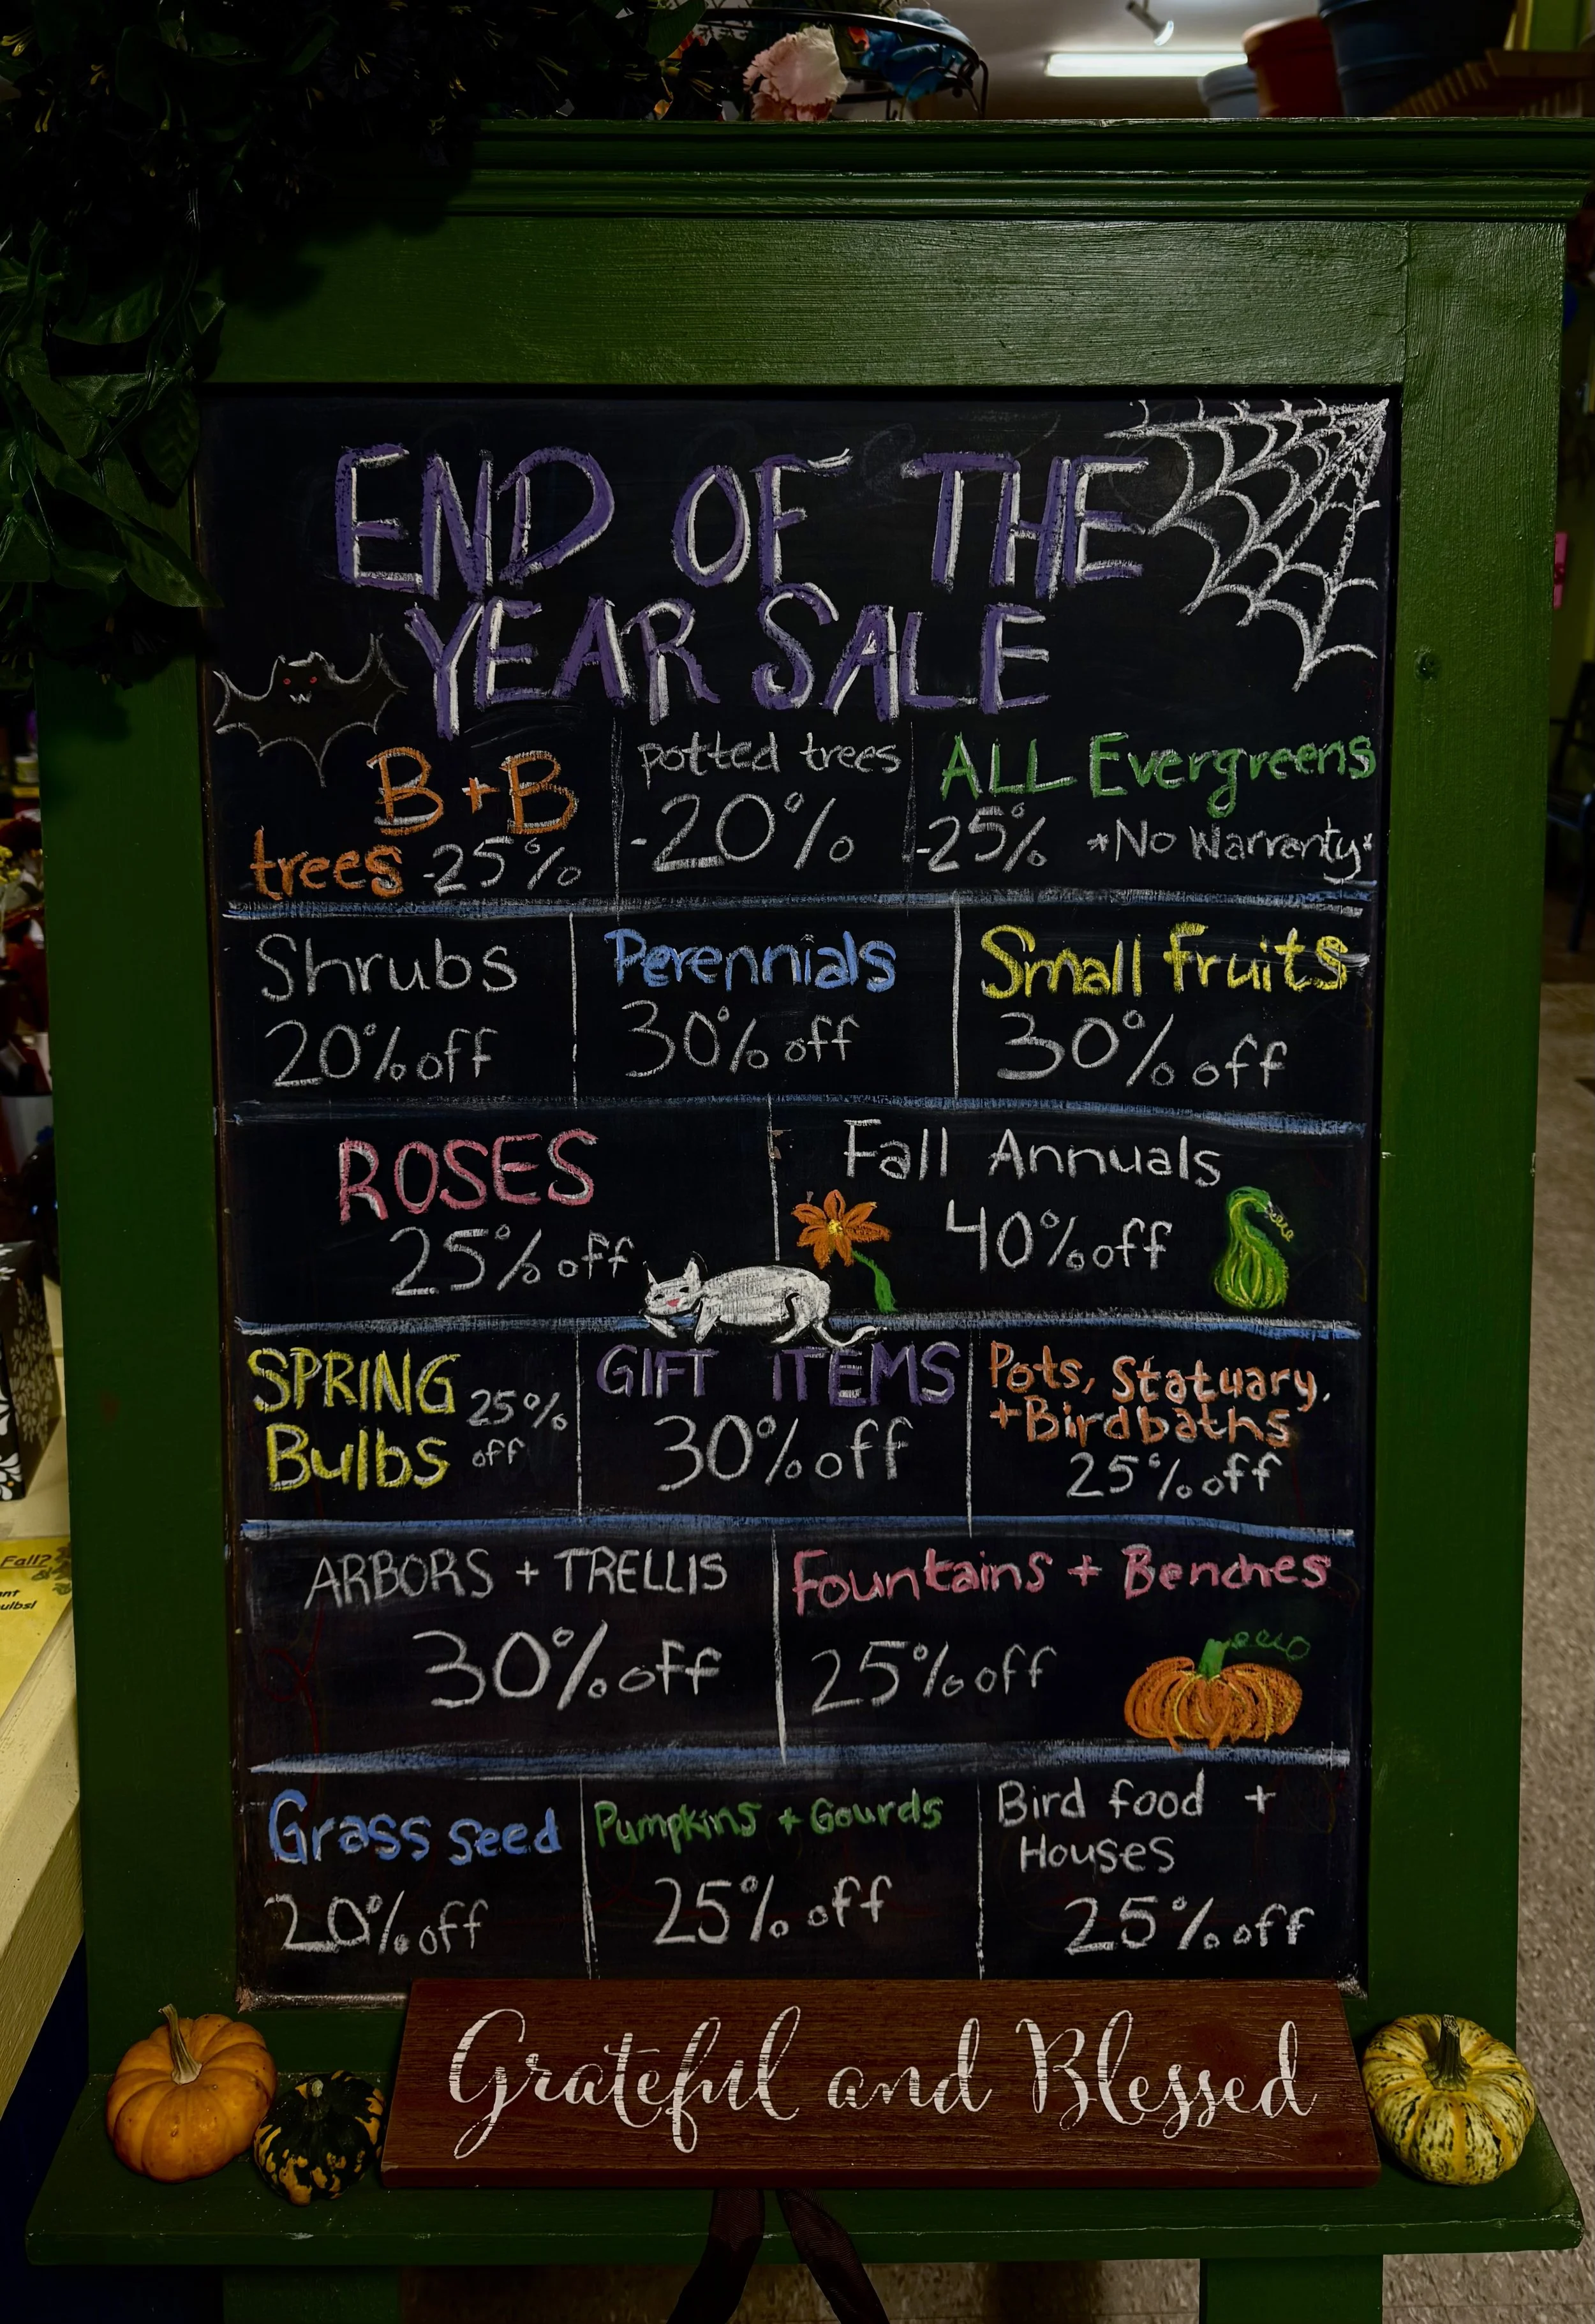 END OF THE
YEAR SALE
B + B
trees -25%
potted trees
-20%
ALL Evergreens
-25% *No Warrenty*
Shrubs
20% off
Perennials
30% off
Small fruits
30% off
ROSES
25% off
Fall Annuals
40% off
SPRING
Bulbs
25%
off
GIFT ITEMS
30% off
Pots, Statuary,
+Birdbaths
25% off
ARBORS + TRELLIS
30% off
Fountains + Benches
25% off
Grass seed
20% off
Pumpkins + Gourds
25% off
Bird food +
Houses
25% off
Grateful and Blessed
Fall?